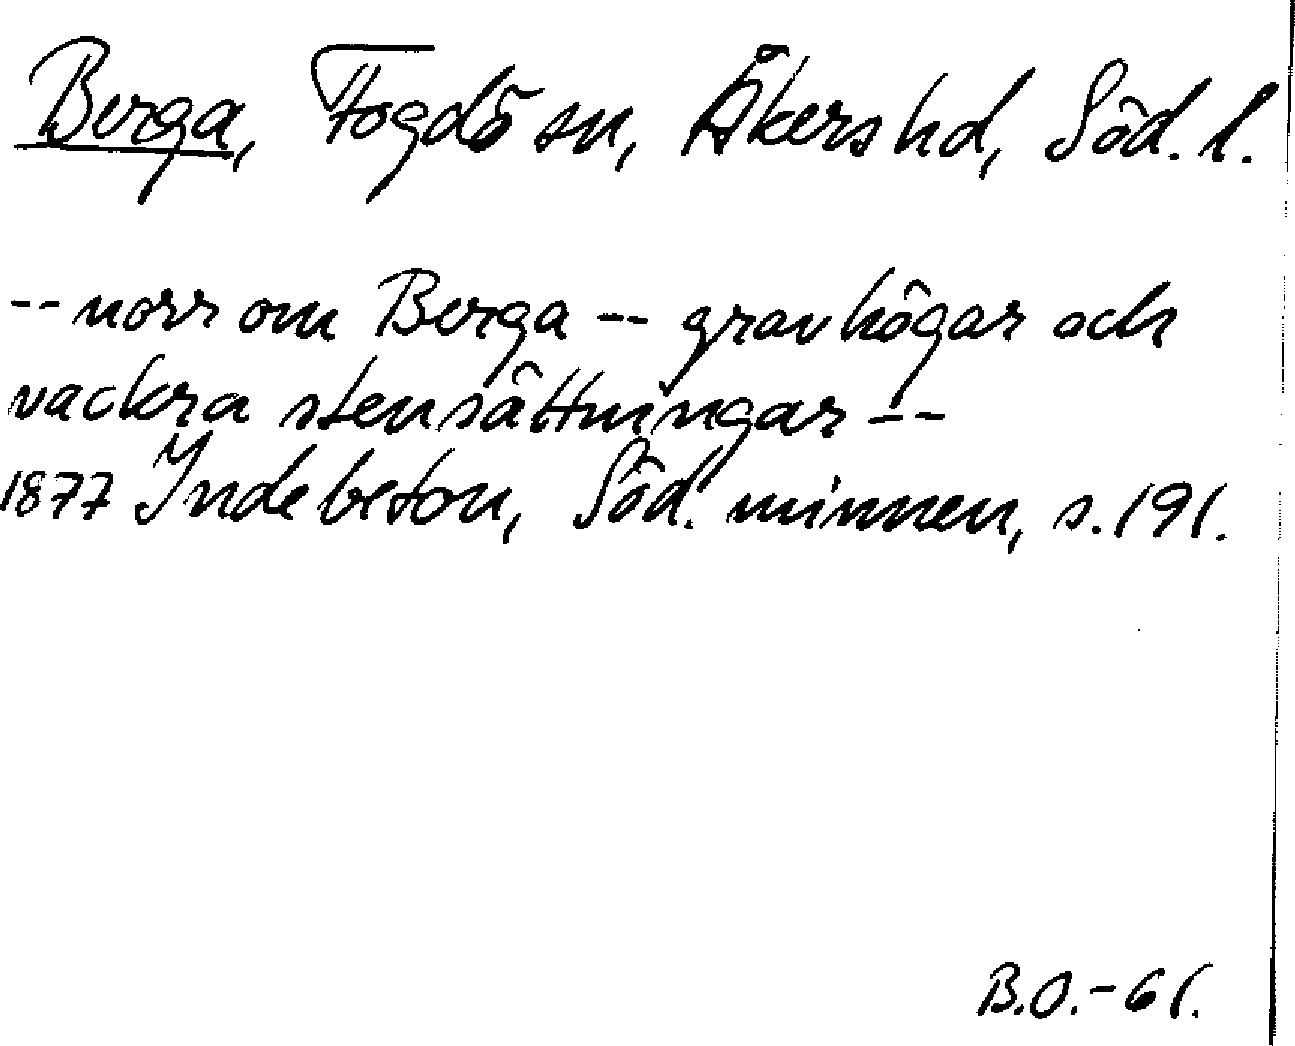 Berga, Fogdö sn, Åkers hd, Söd. l.
-- norr om Berga -- gravhögar och
vackra stensättningar --
1877 Indebetou, Söd. minnen, s. 191.
B.O.-61.